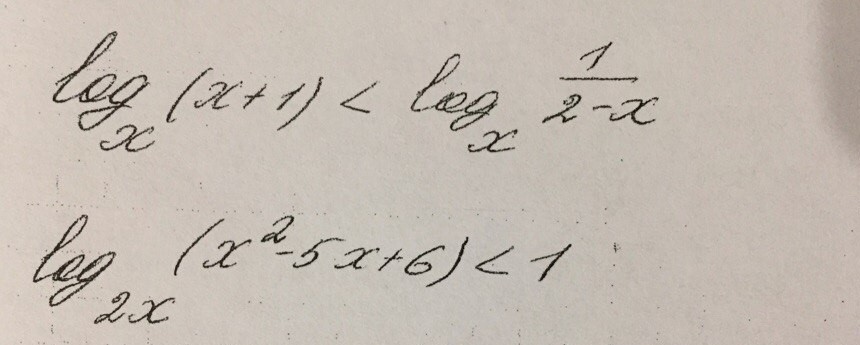 logₓ (x+1) < logₓ 1/(2-x)
log₂ₓ (x²-5x+6) < 1